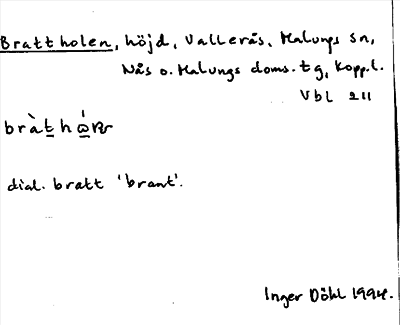 Brattholen, höjd, Vallerås, Malungs sn,
Nås o. Malungs doms. tg, Kopp. l.
Vbl 211
dial. bratt 'brant'.
Inger Döhl 1994.